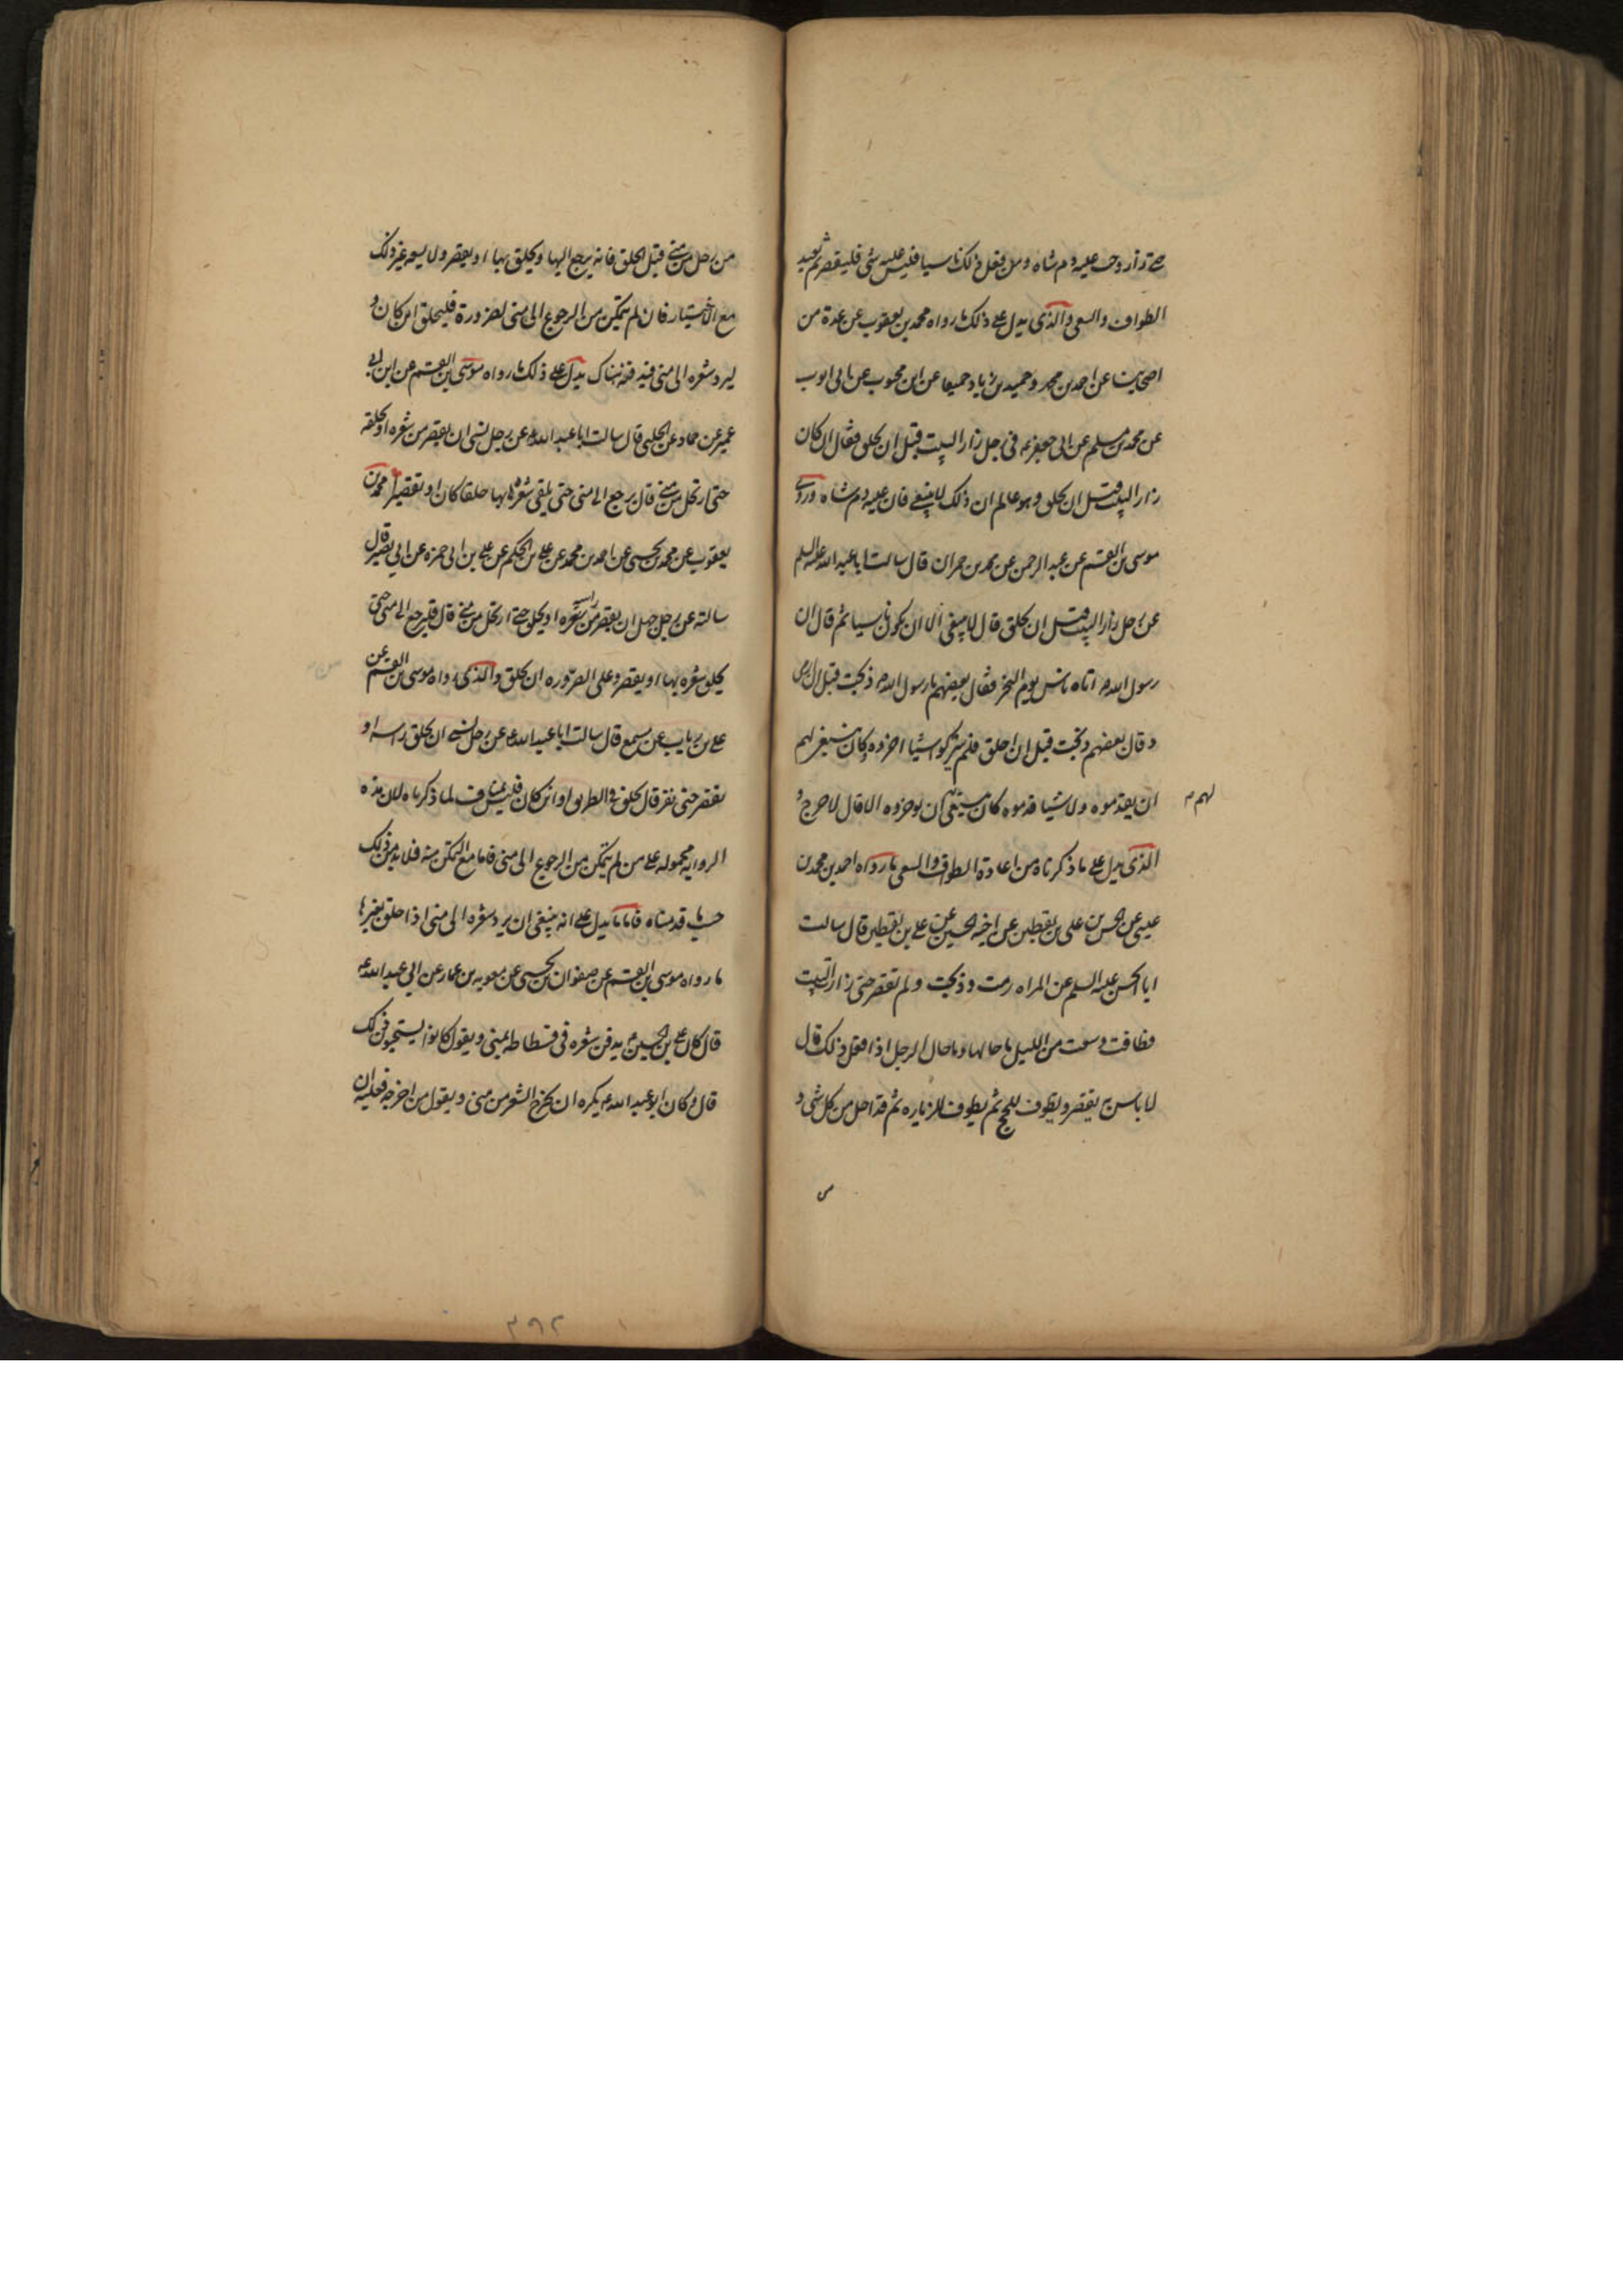 حتى زار وجب عليه دم شاه ومن فعل ذلك ناسيا فليس عليه شئ فليقصر ثم يعيد
الطواف والسعى والذى يدل على ذلك ما رواه محمد بن يعقوب عن عدة من
اصحابنا عن احمد بن محمد وحميد بن زياد جميعا عن ابن محبوب عن ابى ايوب
عن محمد بن مسلم عن ابى جعفر ع فى رجل زار البيت قبل ان يحلق فقال ان كان
زار البيت قبل ان يحلق وهو عالم ان ذلك لا ينبغى فان عليه دم شاه وروى
موسى بن القسم عن عبد الرحمن عن محمد بن حمران قال سالت ابا عبد الله عليه السلم
عن رجل زار البيت قبل ان يحلق قال لا ينبغى الا ان يكون ناسيا ثم قال ان
رسول الله ص اتاه ناس يوم النحر فقال بعضهم يا رسول الله ذبحت قبل ان ارمى
وقال بعضهم ذبحت قبل ان احلق فلم يتركوا شيئا اخروه وكان ينبغى لهم
ان يقدموه ولا شيئا قدموه كان ينبغى لهم ان يوخروه الا قال لا حرج و
لهم
الذى يدل على ما ذكرناه من اعادة الطواف والسعى ما رواه احمد بن محمد بن
عيسى عن الحسن بن على بن يقطين عن اخيه الحسين عن على بن يقطين قال سالت
ابا الحسن عليه السلم عن المراه رمت وذبحت ولم تقصر حتى زارت البيت
فطافت وسعت من الليل ما حالها وما حال الرجل اذا فعل ذلك قال
لا باس به يقصر ويطوف للحج ثم يطوف للزياره ثم قد احل من كل شى و
من رحل من منى قبل الحلق فانه يرجع اليها ويحلق بها او يقصر ولا يسعه غير ذلك
مع الاختيار فان لم يتمكن من الرجوع الى منى لضرورة فليحلق اين كان و
ليرد شعره الى منى فيدفنه هناك يدل على ذلك ما رواه موسى بن القسم عن ابن ابى
عمير عن حماد عن الحلبى قال سالت ابا عبد الله ع عن رجل نسى ان يقصر من شعره او يحلقه
حتى ارتحل من منى قال يرجع الى منى حتى يلقى شعره بها حلقا كان او تقصيرا محمد بن
يعقوب عن محمد بن يحيى عن احمد بن محمد عن على بن الحكم عن على بن ابى حمزه عن ابى بصير قال
سالته عن رجل جهل ان يقصر من شعره راسه او يحلق حتى ارتحل من منى قال فليرجع الى منى حتى
يحلق شعره بها او يقصر وعلى الصروره ان يحلق والذى رواه موسى بن القسم عن
على بن رياب عن مسمع قال سالت ابا عبد الله ع عن رجل نسى ان يحلق راسه او
يقصر حتى نفر قال يحلق فى الطريق او اين كان فليس بمناف لما ذكرناه لان هذه
الروايه محموله على من لم يتمكن من الرجوع الى منى فاما مع التمكن منه فلا بد من ذلك
حسب ما قدمناه فاما ما يدل على انه ينبغى ان يرد شعره الى منى اذا حلق بغيرها
ما رواه موسى بن القسم عن صفوان بن يحيى عن معويه بن عمار عن ابى عبد الله ع
قال كان على بن الحسين ع يدفن شعره فى فسطاطه بمنى ويقول كانوا يستحبون ذلك
قال وكان ابو عبد الله ع يكره ان يخرج الشعر من منى ويقول من اخرجه فعليه ان